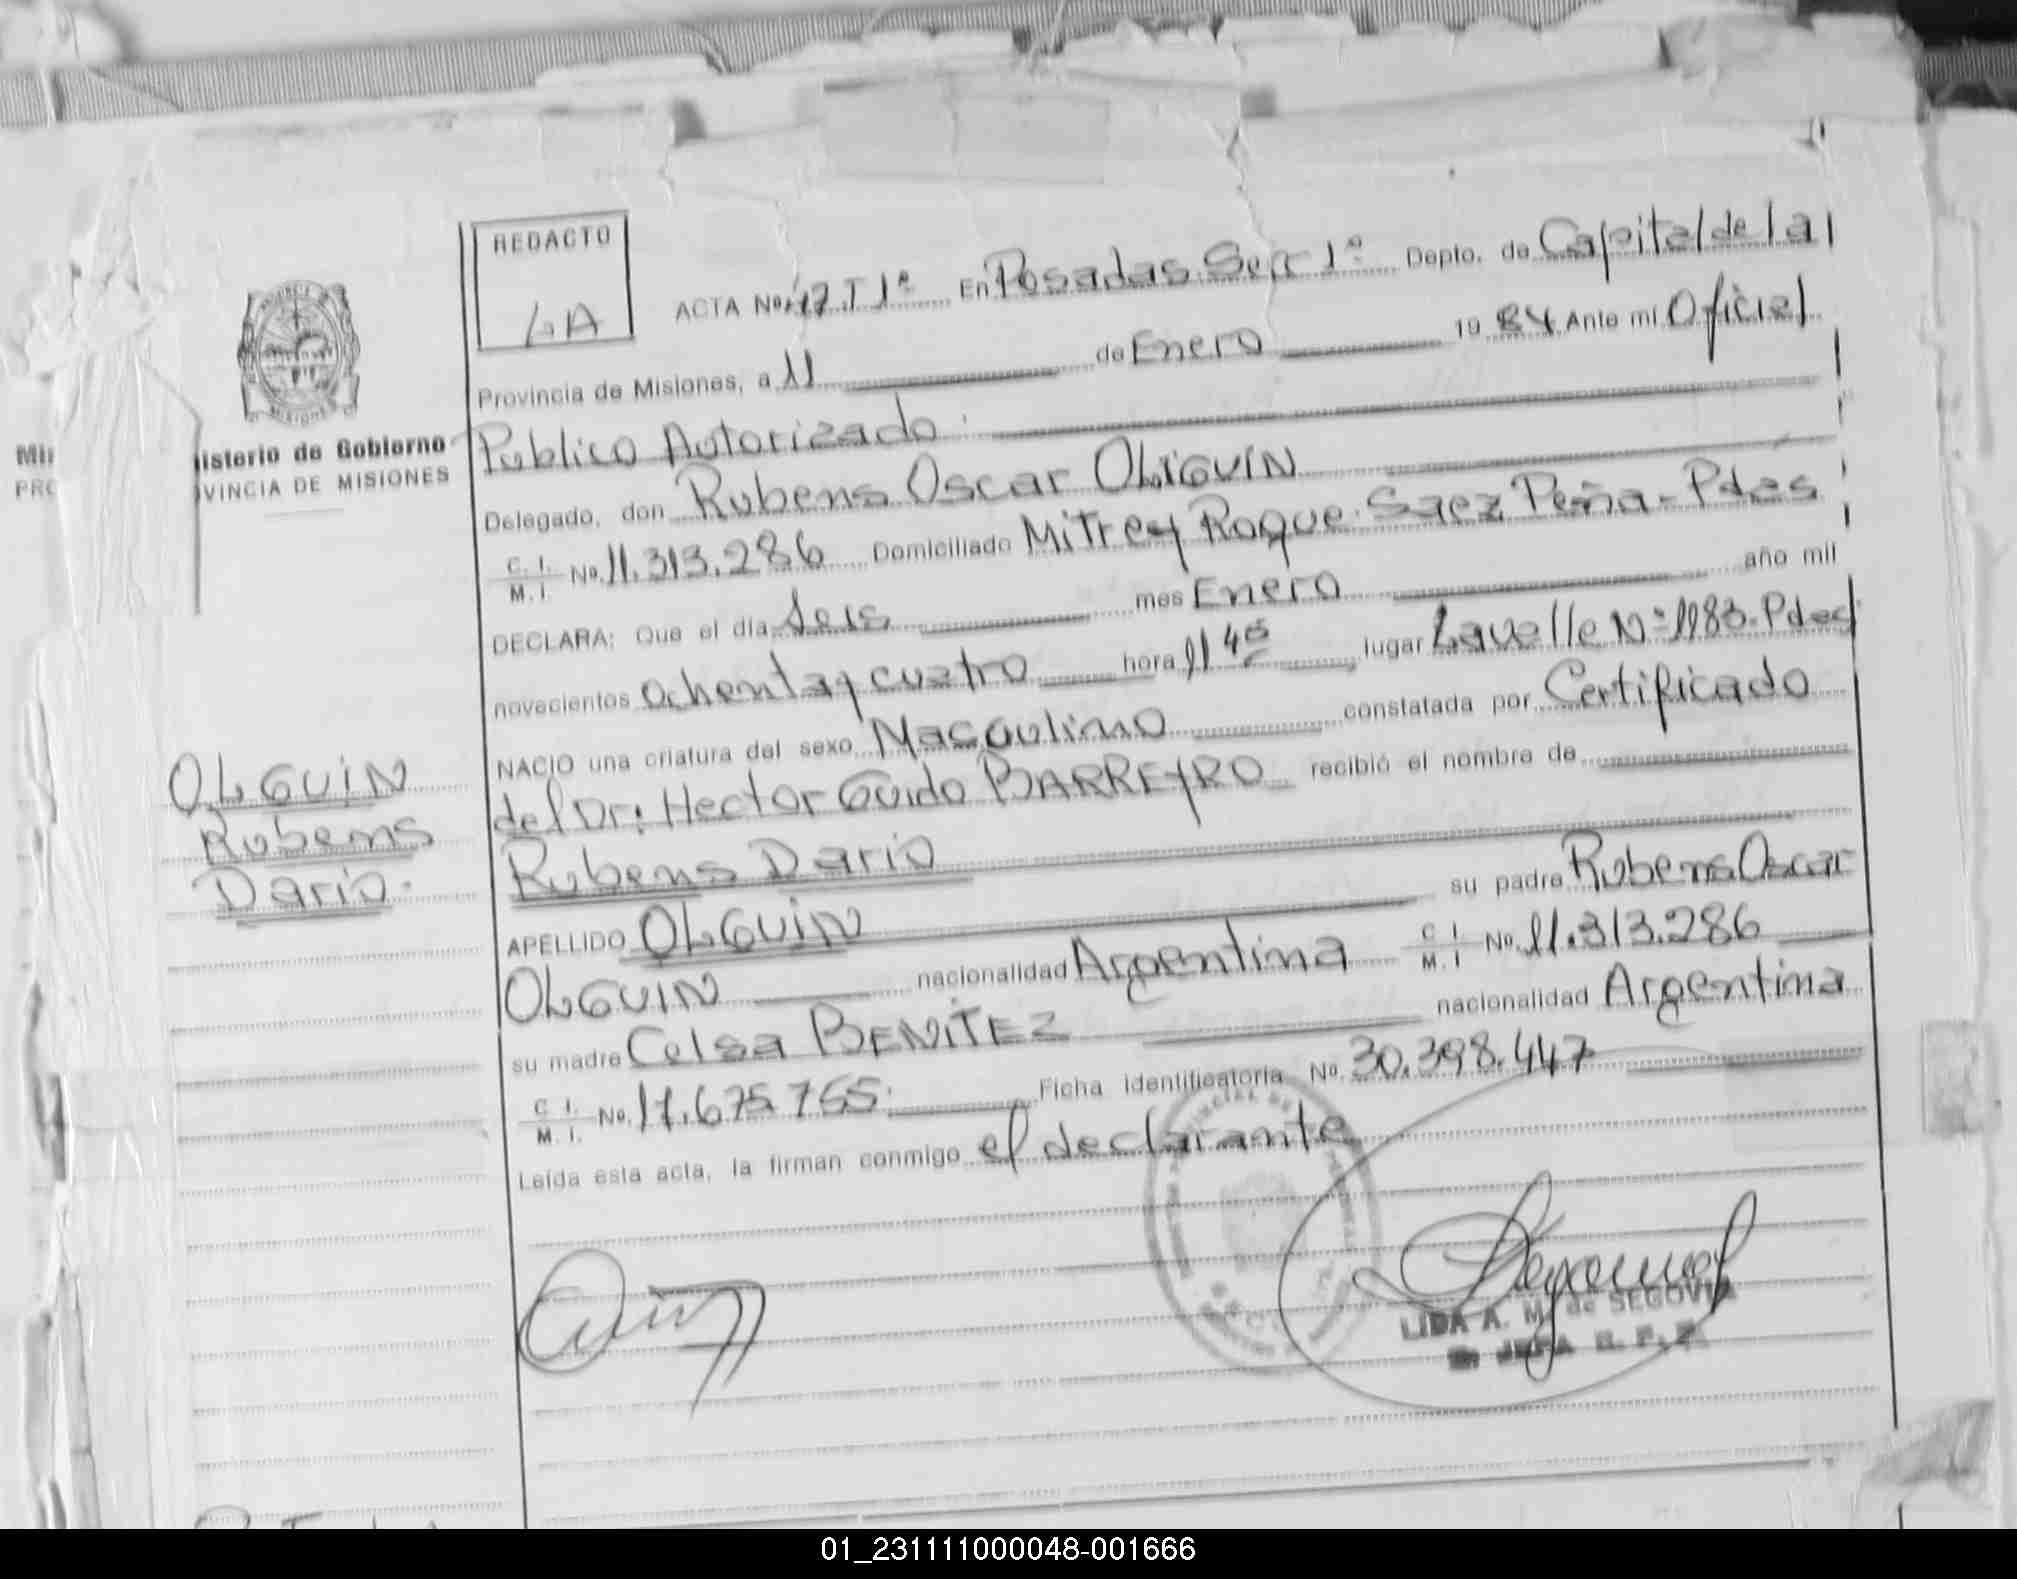 REDACTO
LA
ACTA No. 47 T 1º En Posadas Secc 1º Depto. de Capital de la
Provincia de Misiones, a 11 de Enero 19 84 Ante mi Oficial
Publico Autorizado.
Delegado, don Rubens Oscar OLGUIN
C. I. M. I. No. 11.313.286 Domiciliado Mitre y Roque Saez Peña - Pdas
DECLARA: Que el día Seis mes Enero año mil
novecientos ochenta y cuatro hora 11 45 lugar Lavalle Nº 1983. Pdas
NACIO una criatura del sexo Masculino constatada por Certificado
del Dr: Hector Guido BARREYRO recibió el nombre de
Rubens Dario
APELLIDO OLGUIN su padre Rubens Oscar
OLGUIN nacionalidad Argentina C. I. M. I. No. 11.313.286
su madre Celsa BENITEZ nacionalidad Argentina
C. I. M. I. No. 17.675.755. Ficha identificatoria No. 30.398.447
Leída esta acta, la firman conmigo el declarante
LIDA A. M. de SEGOVIA
JEFA
isterio de Gobierno
VINCIA DE MISIONES
OLGUIN
Rubens
Dario.
Mi
PRO
01_231111000048-001666